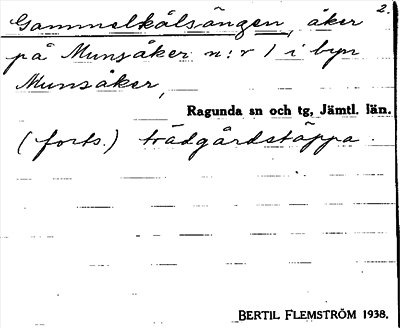 2.
Gammelkålsängen, åker
på Munsåker n:r 1 i byn
Munsåker,
Ragunda sn och tg, Jämtl. län.
(forts.) trädgårdstäppa.
BERTIL FLEMSTRÖM 1938.